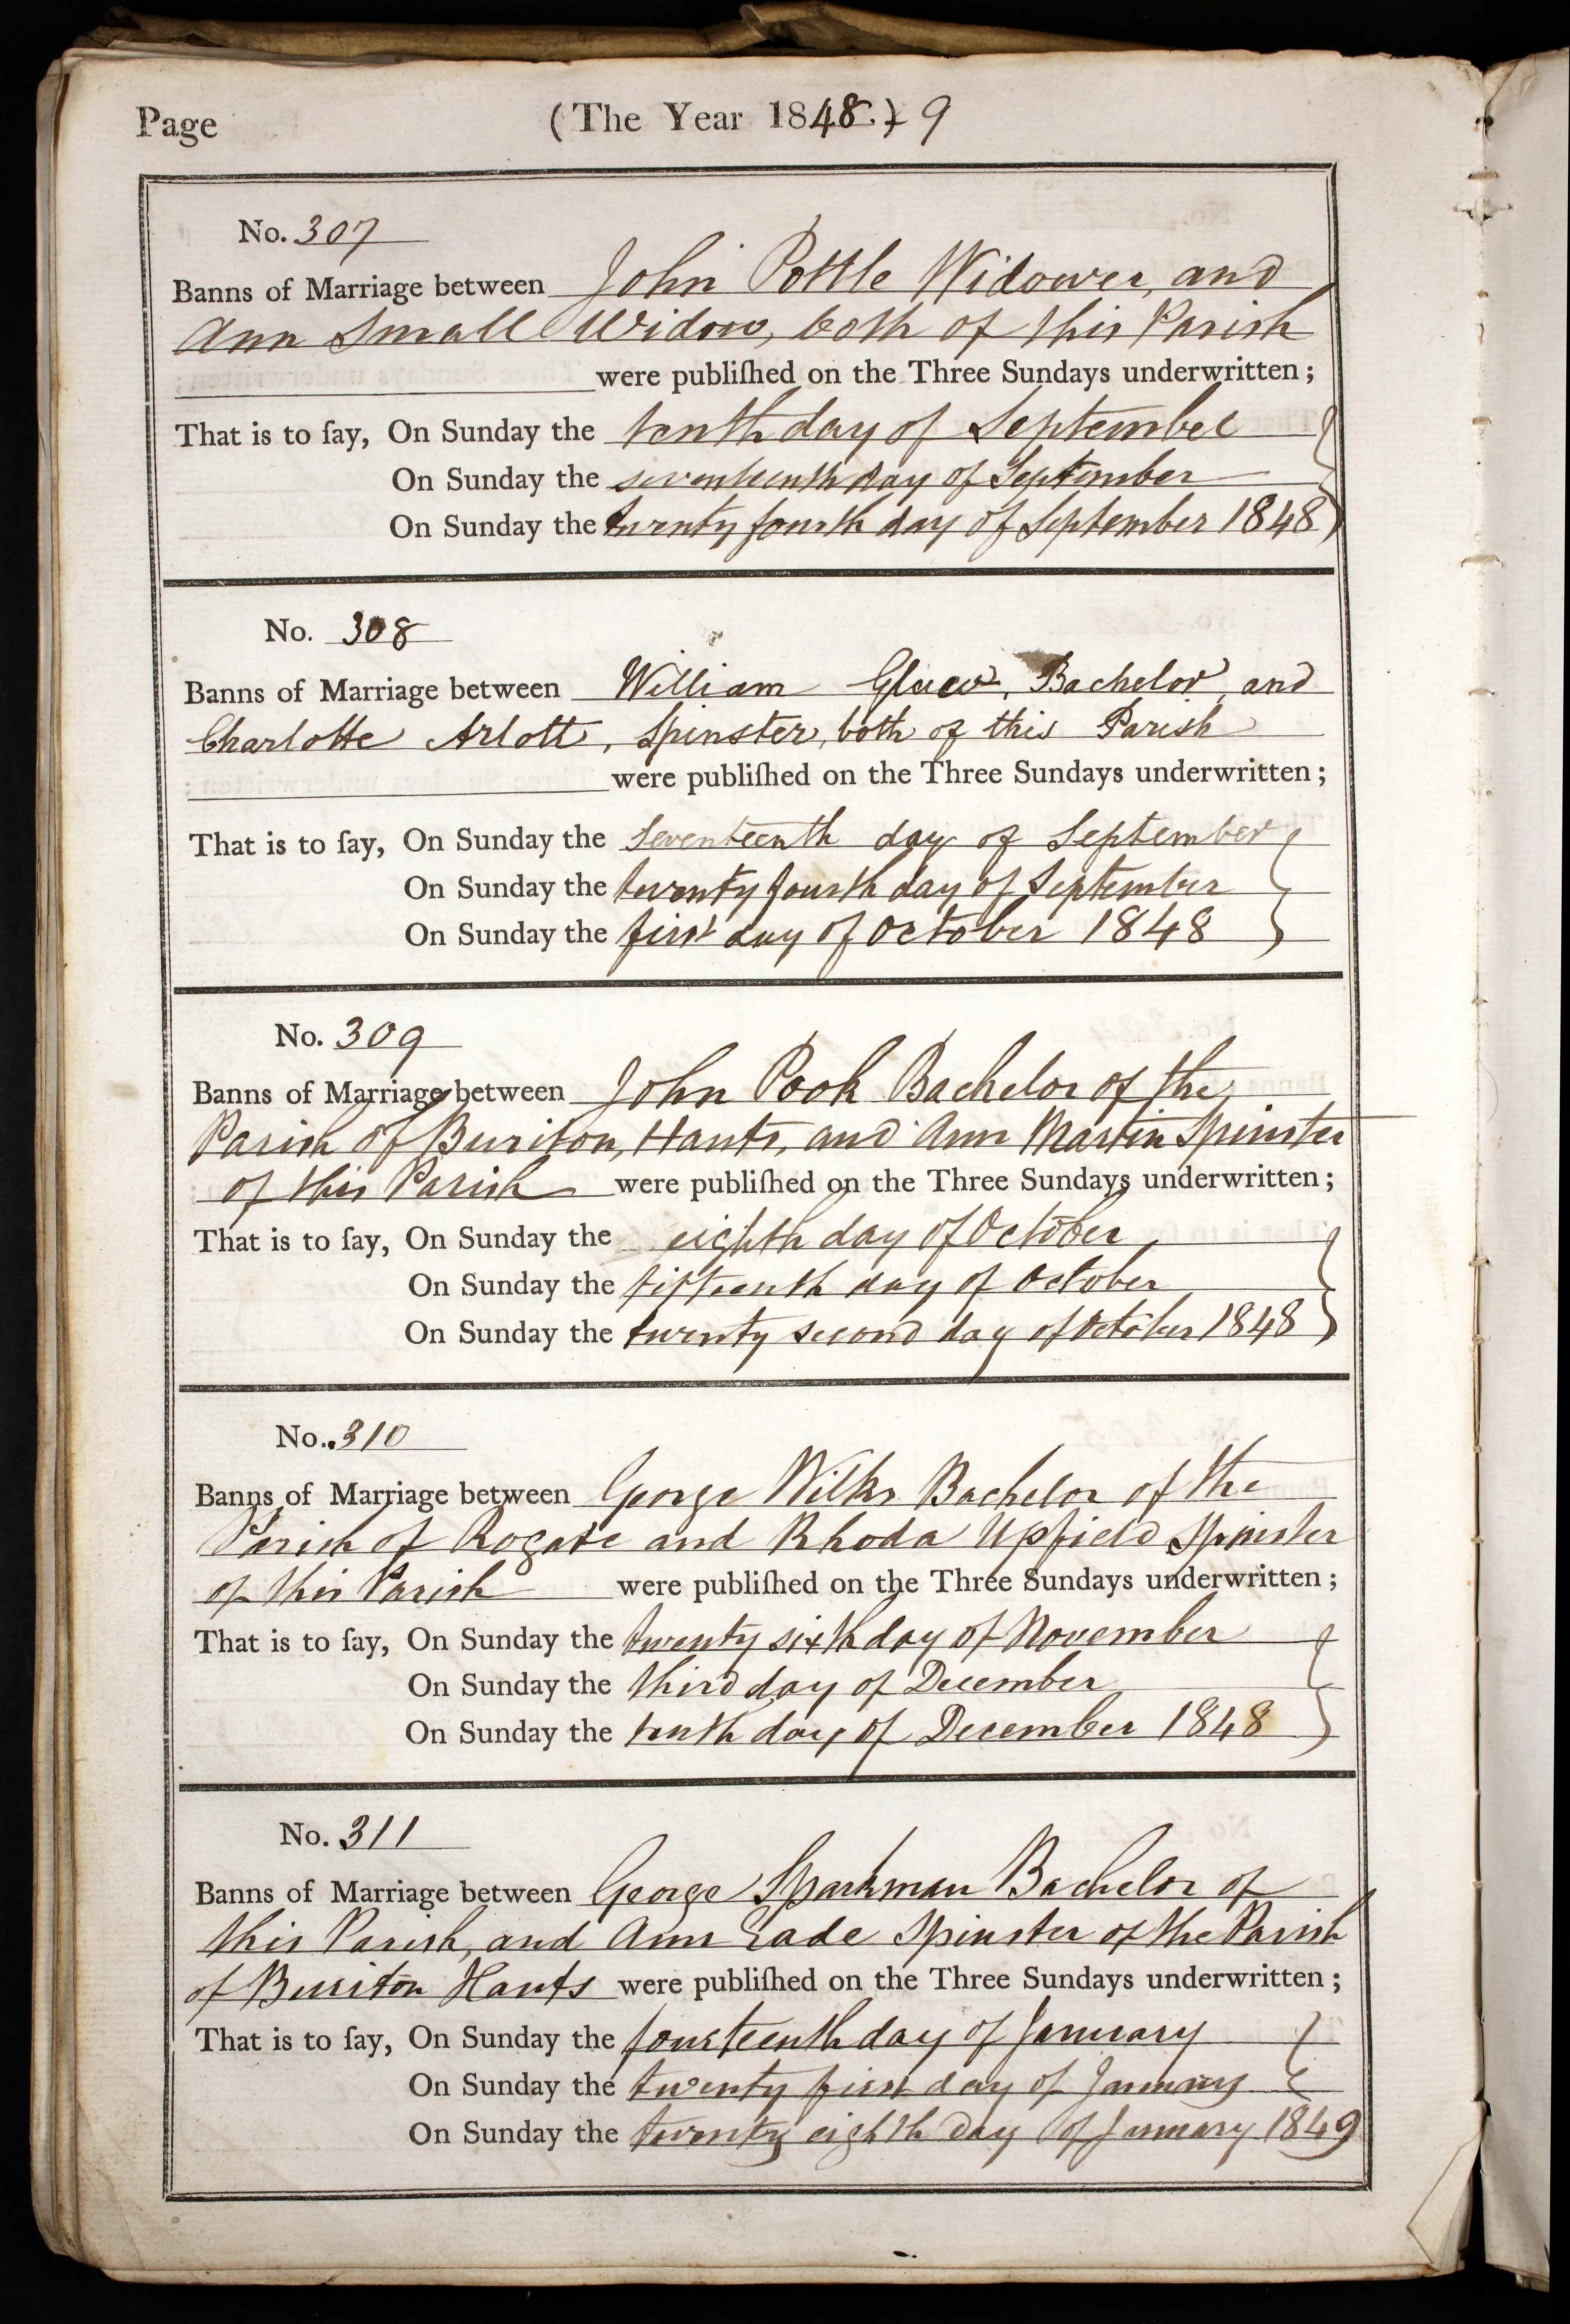 Page (The Year 1848.) 9
No. 307
Banns of Marriage between John Pottle Widower, and
Ann Small Widow, both of this Parish
were publiſhed on the Three Sundays underwritten;
That is to ſay, On Sunday the tenth day of September
On Sunday the seventeenth day of September
On Sunday the twenty fourth day of September 1848
No. 308
Banns of Marriage between William Bachelor, and
Charlotte Arlott, Spinster, both of this Parish
were publiſhed on the Three Sundays underwritten;
That is to ſay, On Sunday the Seventeenth day of September
On Sunday the twenty fourth day of September
On Sunday the first day of October 1848
No. 309
Banns of Marriage between John Pook Bachelor of the
Parish of Buriton, Hants, and Ann Martin Spinster
of this Parish were publiſhed on the Three Sundays underwritten;
That is to ſay, On Sunday the eighth day of October
On Sunday the fifteenth day of October
On Sunday the twenty second day of October 1848
No. 310
Banns of Marriage between George Wilks Bachelor of the
Parish of Rogate and Rhoda Upfield Spinster
of this Parish were publiſhed on the Three Sundays underwritten;
That is to ſay, On Sunday the twenty sixth day of November
On Sunday the third day of December
On Sunday the tenth day of December 1848
No. 311
Banns of Marriage between George Sparkman Bachelor of
this Parish, and Ann Eade Spinster of the Parish
of Buriton Hants were publiſhed on the Three Sundays underwritten;
That is to ſay, On Sunday the fourteenth day of January
On Sunday the twenty first day of January
On Sunday the twenty eighth day of January 1849